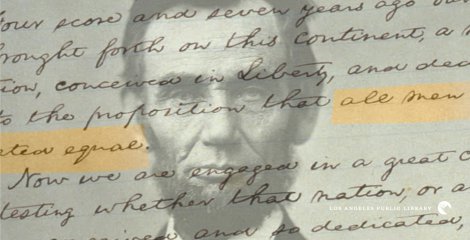 Four score and seven years ago our
brought forth on this continent, a n
tion, conceived in Liberty, and ded
to the proposition that all men
ated equal.
Now we are engaged in a great c
testing whether that nation, or a
conceived and so dedicated,
LOS ANGELES PUBLIC LIBRARY